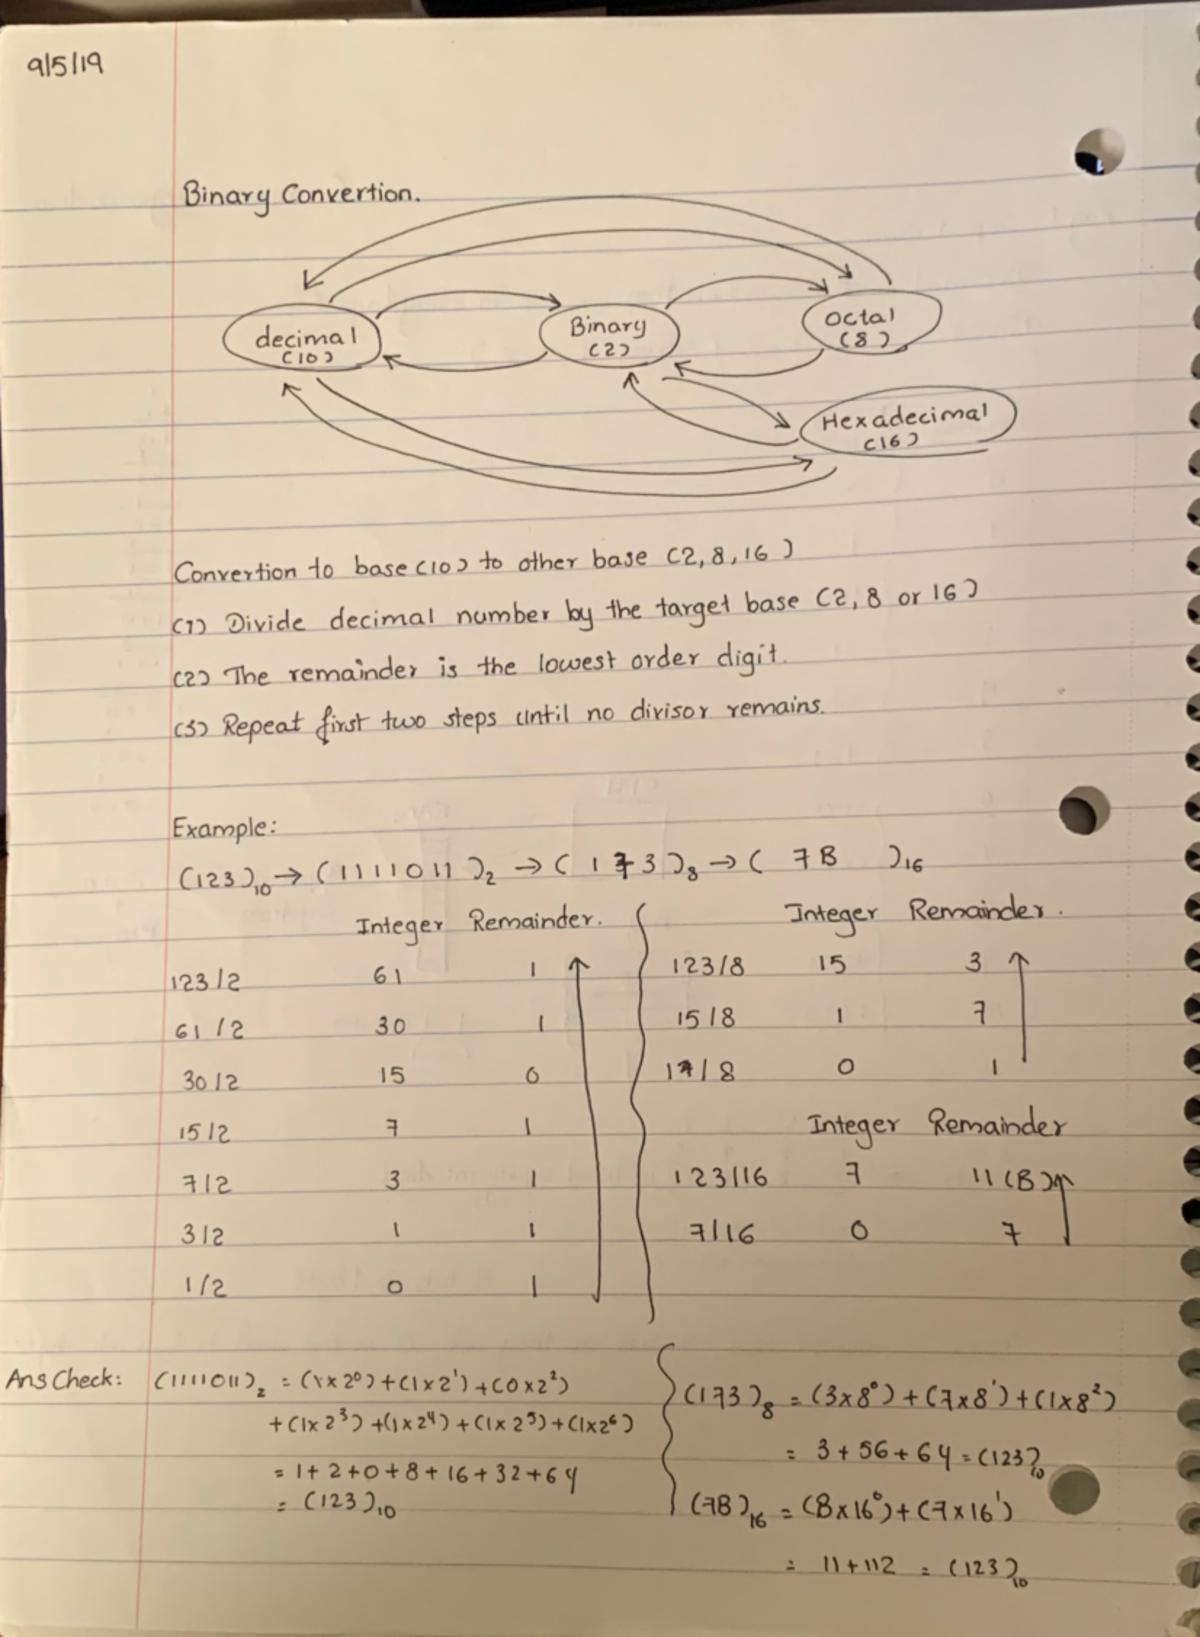 9/5/19
Binary Convertion.
decimal
(10)
Binary
(2)
Octal
(8)
Hexadecimal
(16)
Convertion to base (10) to other base (2, 8, 16)
(1) Divide decimal number by the target base (2, 8 or 16)
(2) The remainder is the lowest order digit.
(3) Repeat first two steps until no divisor remains.
Example:
(123)₁₀ → (1111011)₂ → (173)₈ → ( 7B )₁₆
Integer Remainder.
123/2 61 1
61/2 30 1
30/2 15 0
15/2 7 1
7/2 3 1
3/2 1 1
1/2 0 1
Integer Remainder.
123/8 15 3
15/8 1 7
1/8 0 1
Integer Remainder
123/16 7 11 (B)
7/16 0 7
Ans Check: (1111011)₂ = (1×2⁰)+(1×2¹)+(0×2²)
+(1×2³)+(1×2⁴)+(1×2⁵)+(1×2⁶)
= 1+2+0+8+16+32+64
= (123)₁₀
(173)₈ = (3×8⁰)+(7×8¹)+(1×8²)
= 3+56+64 = (123)₁₀
(7B)₁₆ = (B×16⁰)+(7×16¹)
= 11+112 = (123)₁₀